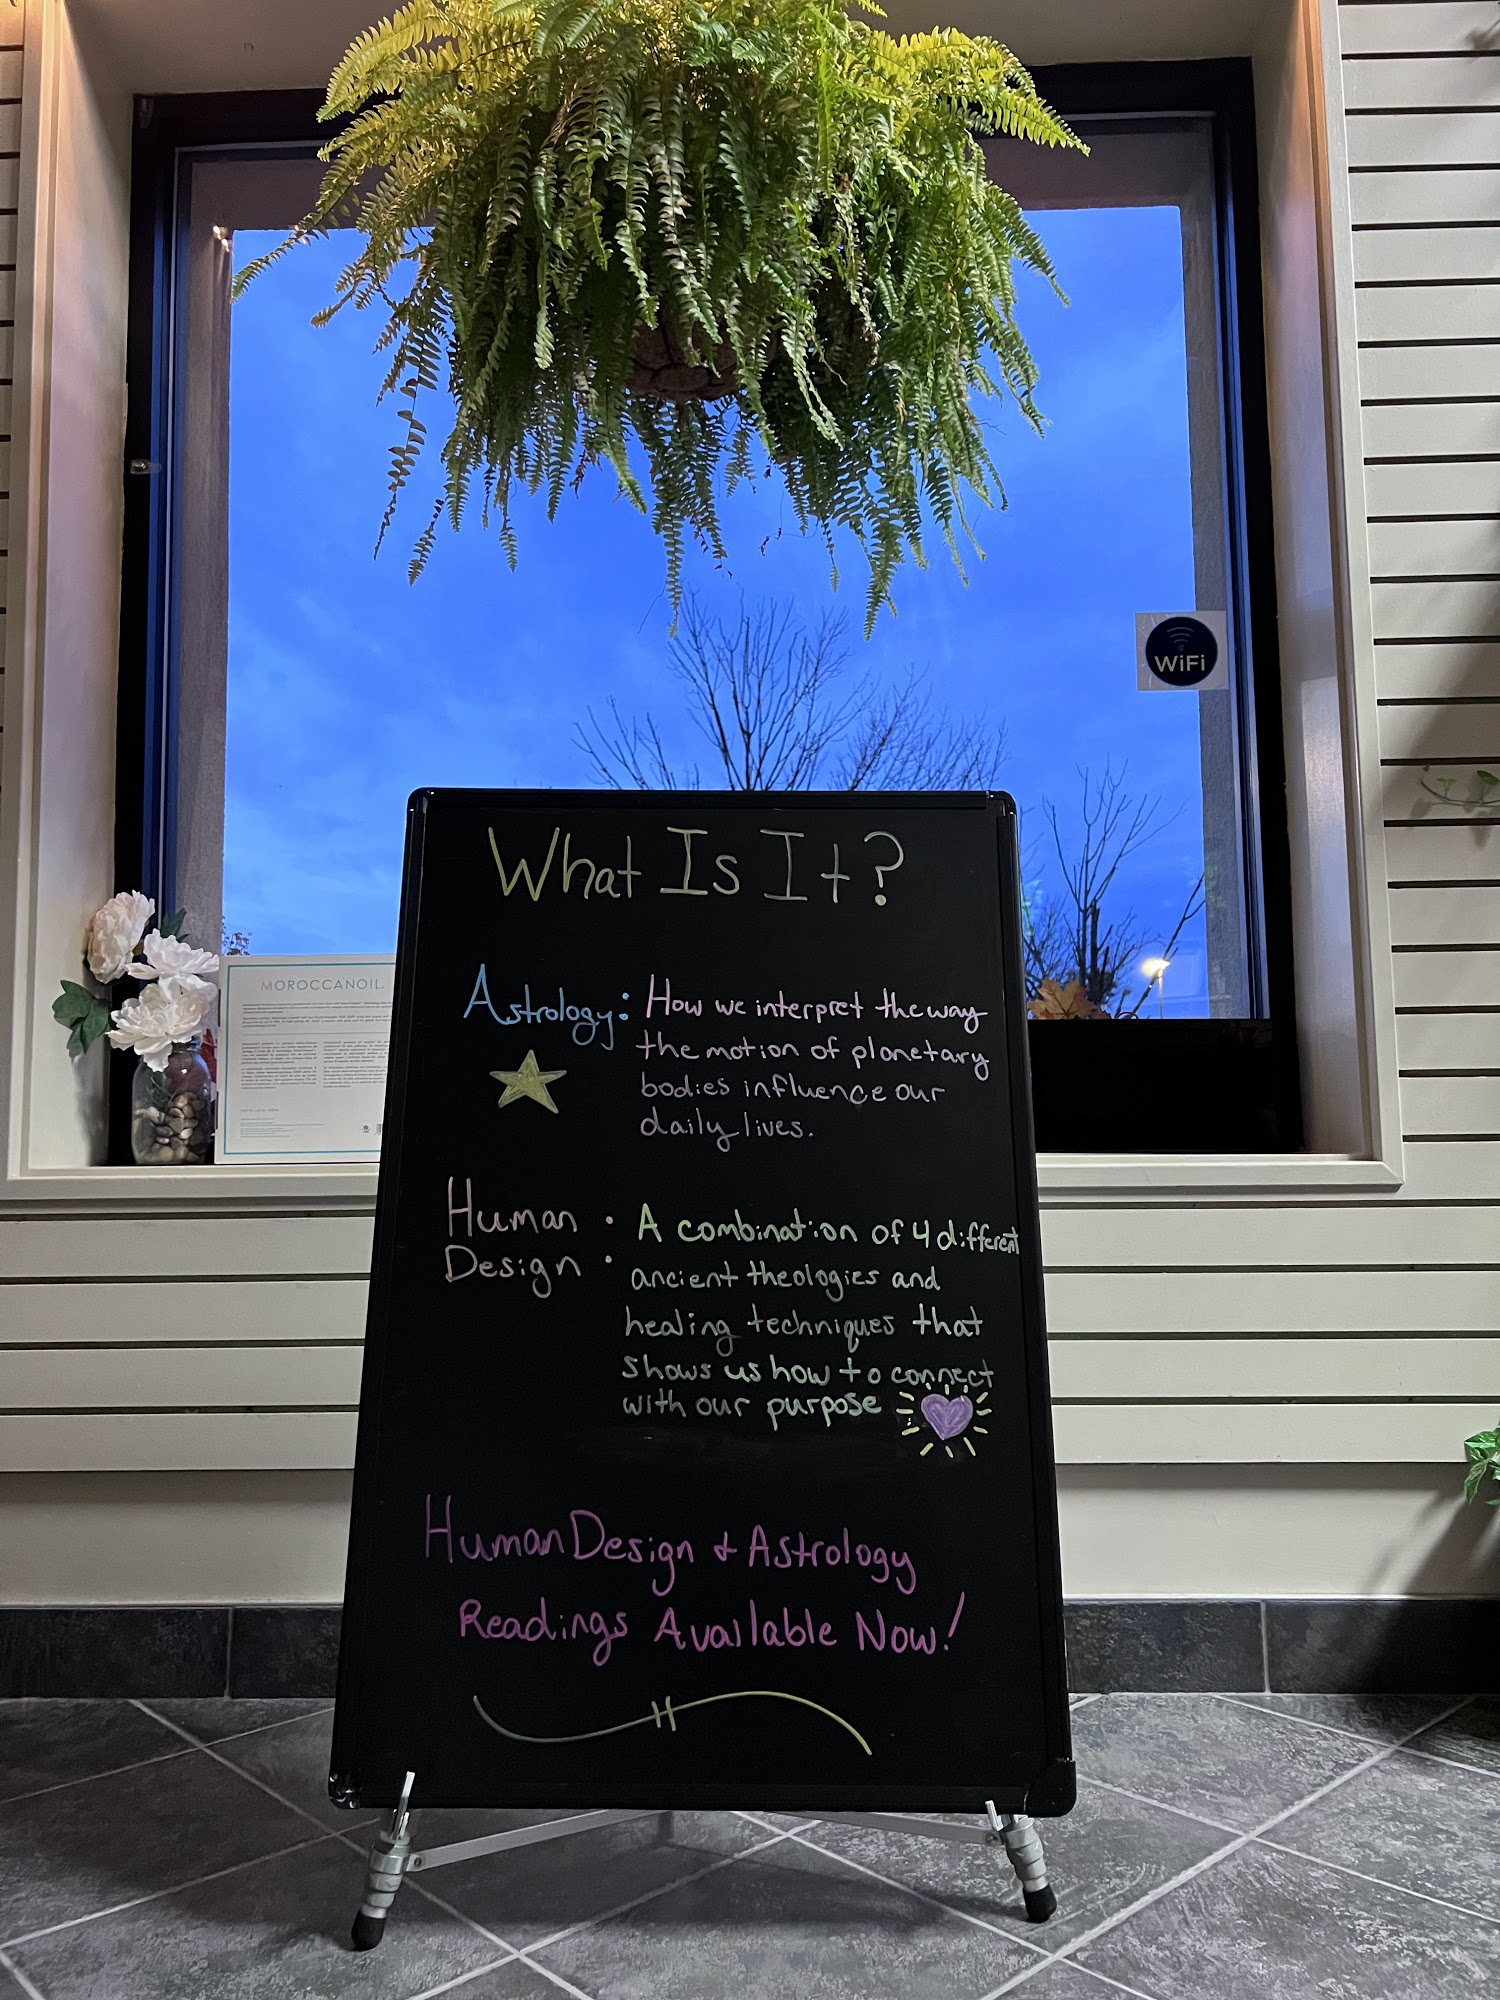 What Is It?
Astrology: How we interpret the way
the motion of planetary
bodies influence our
daily lives.
Human
Design : A combination of 4 different
ancient theologies and
healing techniques that
shows us how to connect
with our purpose
Human Design + Astrology
Readings Available Now!
WiFi
MOROCCANOIL.